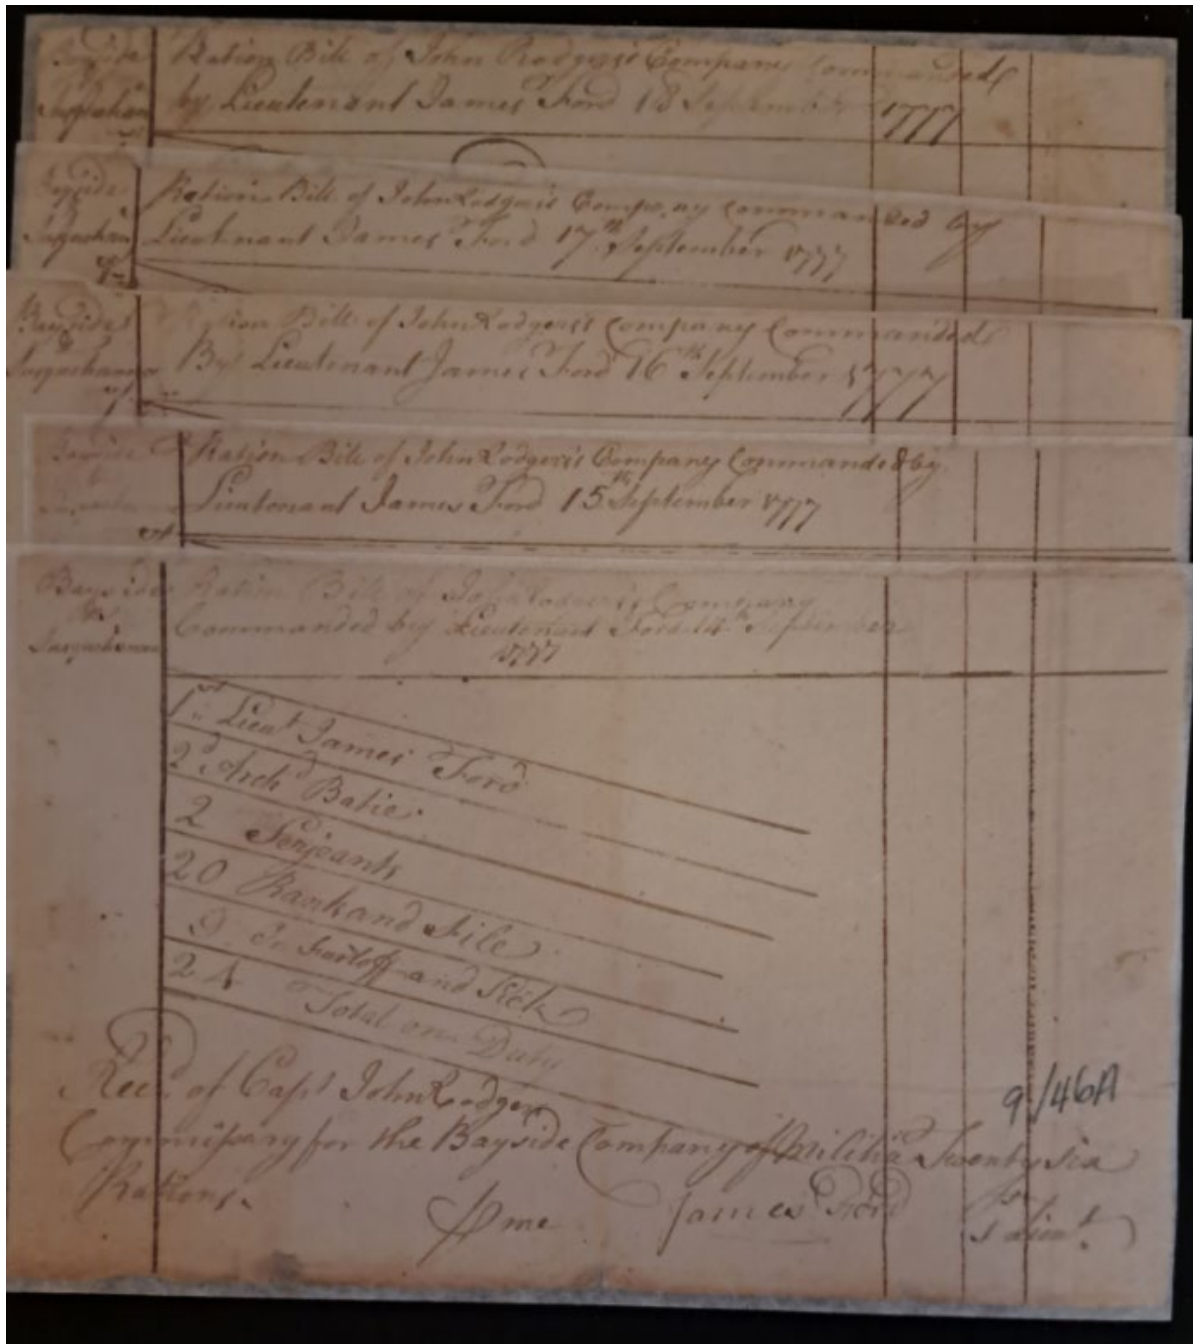 Bayside
Susquehana
Ration Bill of John Rodgers's Company Commanded
by Lieutenant James Ford 18 September 1777
Bayside
Ration Bill of John Rodgers's Company Commanded by
Lieutenant James Ford 17th September 1777
Bayside
&
Susquehanna
Ration Bill of John Rodgers's Company Commanded
By Lieutenant James Ford 16th September 1777
Bayside
Ration Bill of John Rodgers's Company Commanded by
Lieutenant James Ford 15th September 1777
Bayside
Ration Bill of John Rodgers's Company
Commanded by Lieutenant Ford 14th September
1777
1st Lieut James Ford
2d Arch Batie
2 Serjeants
20 Rank and File
Furloff and Sick
24 Total on Duty
9/46A
Recd of Capt John Rodgers
Commissary for the Bayside Company of Militia Twenty Six
Rations.
me James Ford
1st Lieut.